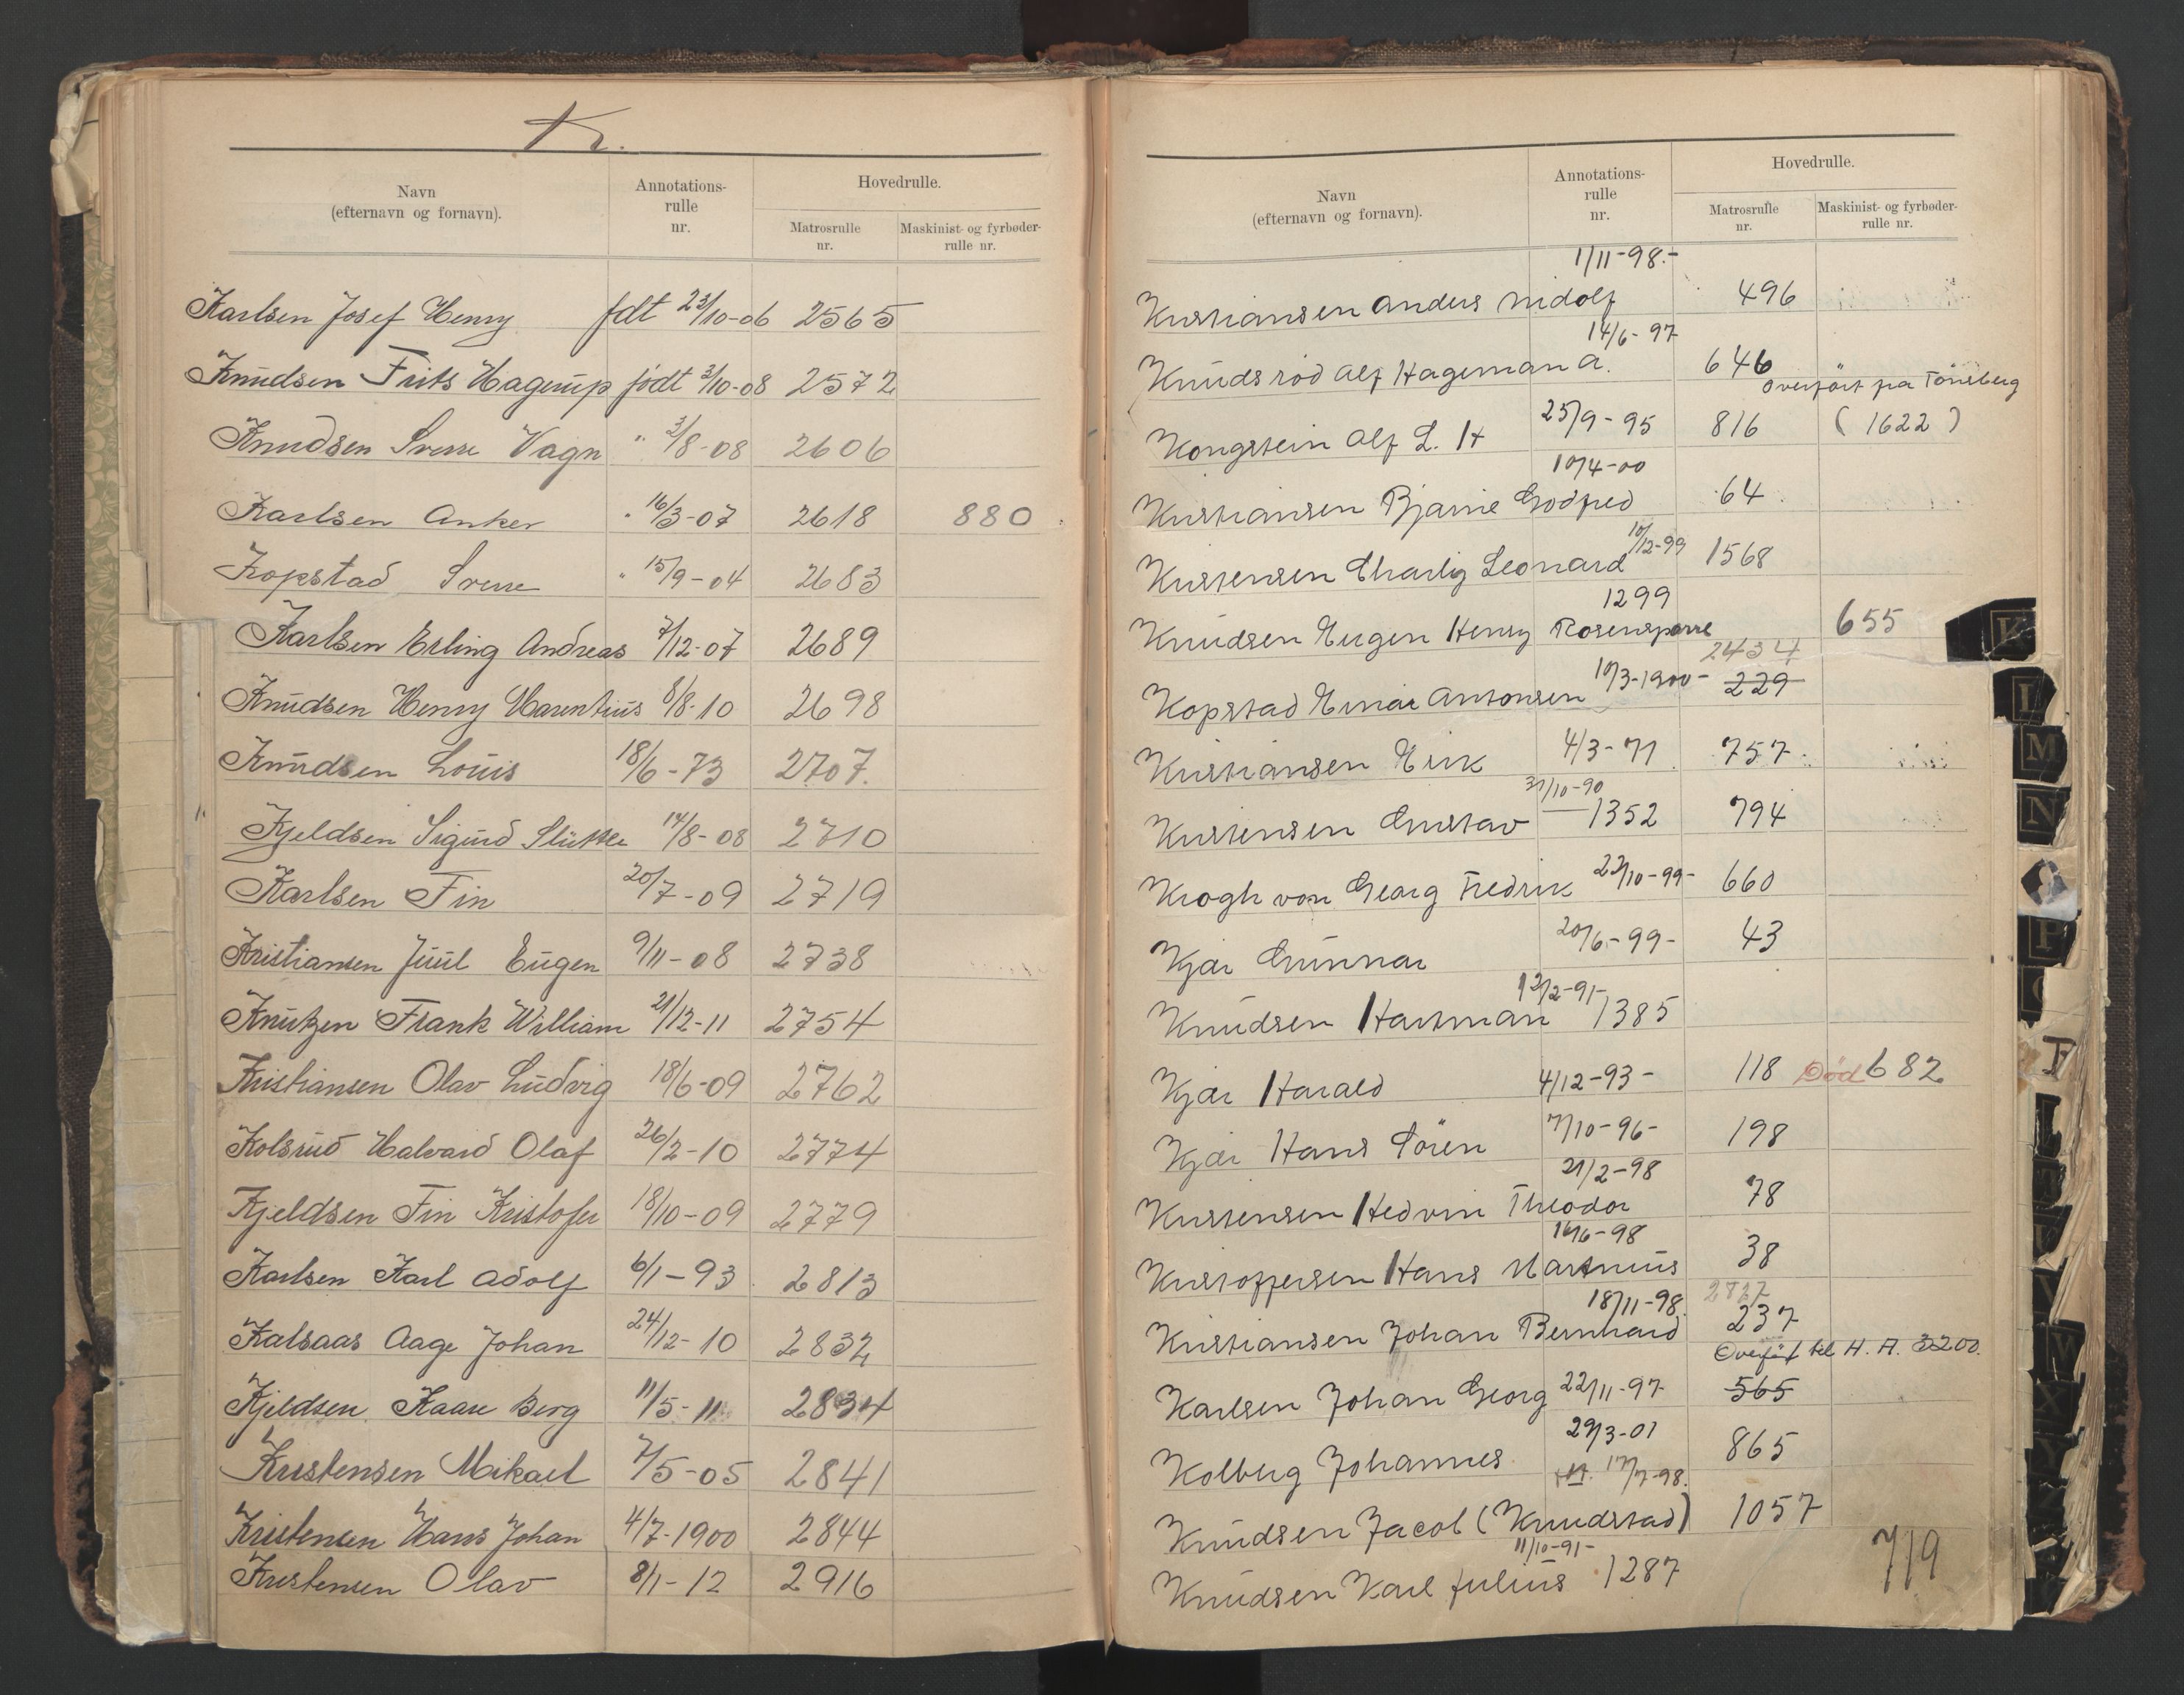 K.
Navn
(efternavn og fornavn).
Annotations-
rulle
nr.
Hovedrulle.
Matrosrulle
nr.
Maskinist- og fyrbøder-
rulle nr.
Karlsen Josef Henry fdt 23/10-06 2565
Knudsen Frits Hagerup födt 3/10-08 2572
Knudsen Sverre Vagn " 3/8-08 2606
Karlsen Anker " 16/3-07 2618 880
Kopstad Sverre " 15/9-04 2683
Karlsen Erling Andreas 7/12-07 2689
Knudsen Henry Marentius 8/8-10 2698
Knudsen Louis 18/6-73 2707.
Kjeldsen Sigurd 14/8-08 2710
Karlsen Fin 20/7-09 2719
Kristiansen Juul Eugen 9/11-08 2738
Knutzen Frank William 21/12-11 2754
Kristiansen Olav Ludvig 18/6-09 2762
Kolsrud Halvard Olaf 26/2-10 2774
Kjeldsen Fin Kristofer 18/10-09 2779
Karlsen Karl Adolf 6/1-93 2813
Kalsaas Aage Johan 24/12-10 2832
Kjeldsen Kaare Berg 11/5-11 2834
Kristensen Mikael 7/5-05 2841
Kristensen Hans Johan 4/7-1900 2844
Kristensen Olav 8/1-12 2916
Navn
(efternavn og fornavn).
Annotations-
rulle
nr.
Hovedrulle.
Matrosrulle
nr.
Maskinist- og fyrbøder-
rulle nr.
1/11-98.-
Kristiansen Anders Nidolf 496
14/6-97
Knudsröd Alf Hageman A. 646
Overfört fra Tönsberg
Kongstein Alf L. H 25/9-95 816 (1622)
10/4-00
Kristiansen Bjarne Godfred 64
10/12-99
Kristensen Charly Leonard 1568
1299
Knudsen Eugen Henry Rosensparre 655
2434
Kopstad Einar Antonsen 10/3-1900- 229
Kristiansen Erik 4/3-71 757
31/10-90
Kristensen Gustav 1352 794
Krogh von Georg Fredrik 22/10-99- 660
Kjær Gunnar 20/6-99- 43
12/2-91-
Knudsen Hartman 1385
Kjær Harald 4/12-93- 118 Död 682
Kjær Hans Sören 7/10-96- 198
21/2-98
Kristensen Hedvin Theodor 78
16/6-98
Kristoffersen Hans Martinius 38
18/11-98. 2827
Kristiansen Johan Bernhard 237
Overfört til H. A. 3200.
Karlsen Johan Georg 22/11-97 565
29/3-01
Kolberg Johannes 865
17/7-98.
Knudsen Jacob (Knudstad) 1057
11/10-91-
Knudsen Karl Julius 1287
719
K
L
M
N
P
W
X
Y